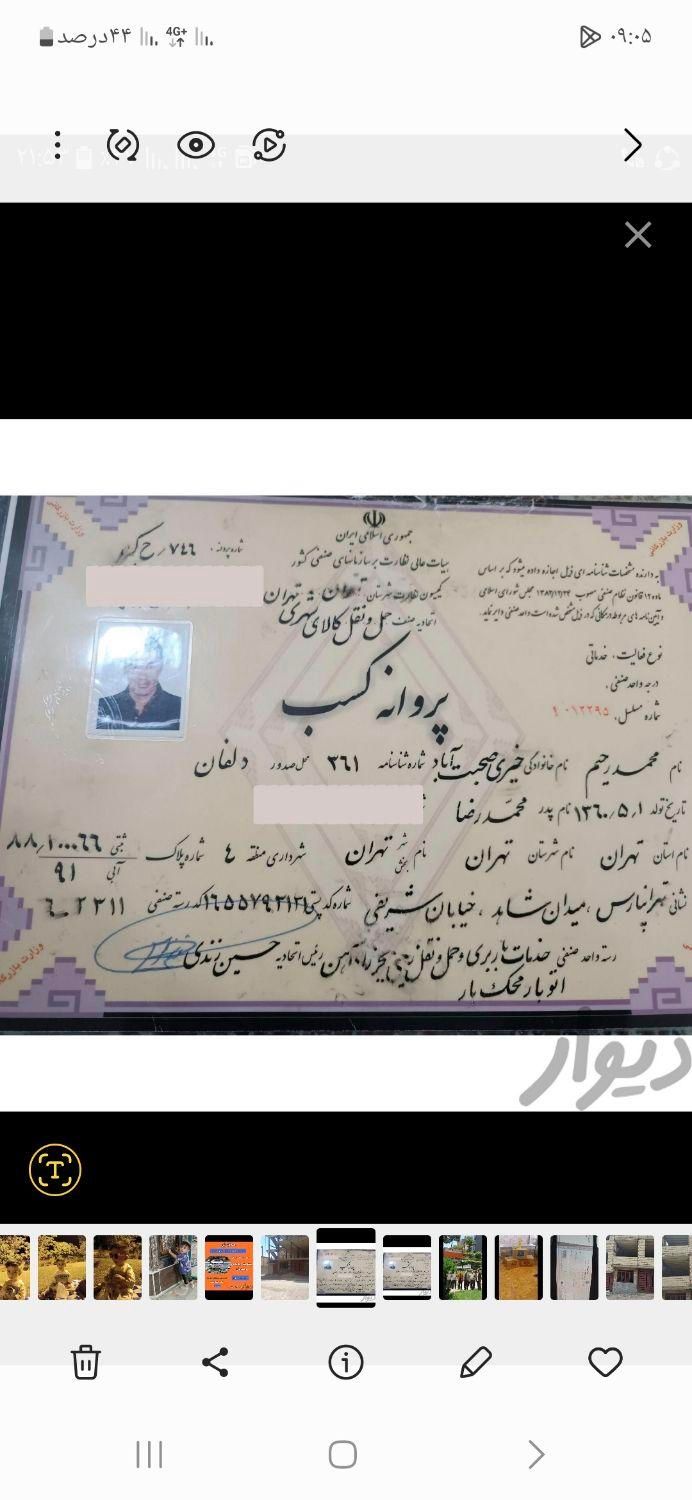 ۰۹:۰۵
4G+
۴۴درصد
۲۱:۵۳
جمهوری اسلامی ایران
هیات عالی نظارت بر سازمانهای صنفی کشور
کمیسیون نظارت شهرستان تهران
اتحادیه صنف حمل و نقل کالای شهری
شماره پروانه : ۷۴۶
به دارنده مشخصات شناسنامه ای ذیل اجازه داده میشود که بر اساس
ماده ۱۲ قانون نظام صنفی مصوب ۱۳۸۲/۱۲/۲۴ مجلس شورای اسلامی
نوع فعالیت : خدماتی
درجه واحد صنفی :
شماره مسلسل :
پروانه کسب
نام محمد رحیم نام خانوادگی خیری صحبت آباد شماره شناسنامه ۳۶۱ محل صدور دلفان
تاریخ تولد ۱۳۶۰/۵/۱ نام پدر محمد رضا
نام استان تهران نام شهرستان تهران نام شهر بخش تهران شهرداری منطقه ۴ شماره پلاک ثبتی ۸۸/۱۰۰۰۶۶
آبی ۹۱
نشانی تهرانپارس ، میدان شاهد ، خیابان شریفی شماره کد پستی ۱۶۵۵۷۹۳۱۳۱ کد رسته صنفی ۶۰۲۳۱۱
رسته واحد صنفی خدمات باربری و حمل و نقل زمینی بجز راه آهن رئیس اتحادیه حسین زندی
اتوبار محک بار
وزارت بازرگانی
دیوار
T